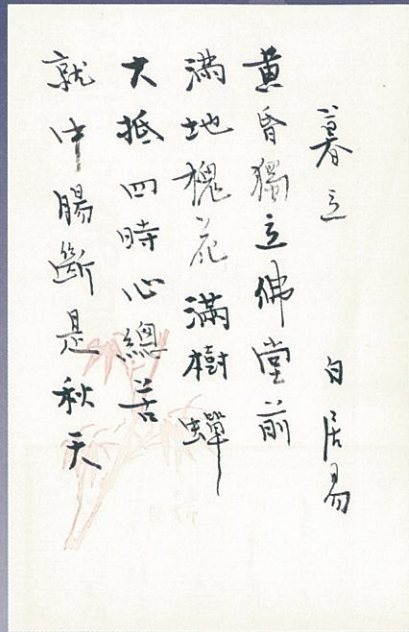 暮立　白居易
黄昏獨立佛堂前
滿地槐花滿樹蟬
大抵四時心總苦
就中腸斷是秋天